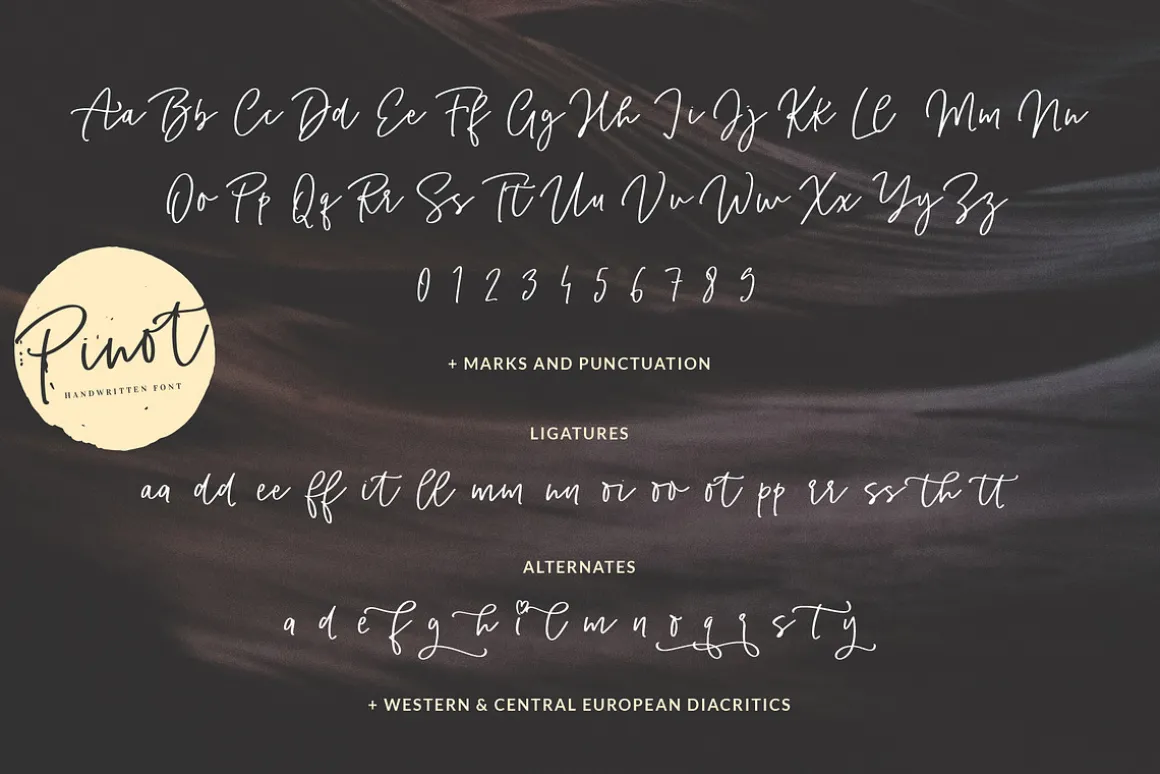 Aa Bb Cc Dd Ee Ff Gg Hh Ii Jj Kk Ll Mm Nn
Oo Pp Qq Rr Ss Tt Uu Vv Ww Xx Yy Zz
0 1 2 3 4 5 6 7 8 9
Pinot
HANDWRITTEN FONT
+ MARKS AND PUNCTUATION
LIGATURES
aa dd ee ff it ll mm nn oi oo ot pp rr ss th tt
ALTERNATES
a d e f g h i l m n o q r s t y
+ WESTERN & CENTRAL EUROPEAN DIACRITICS